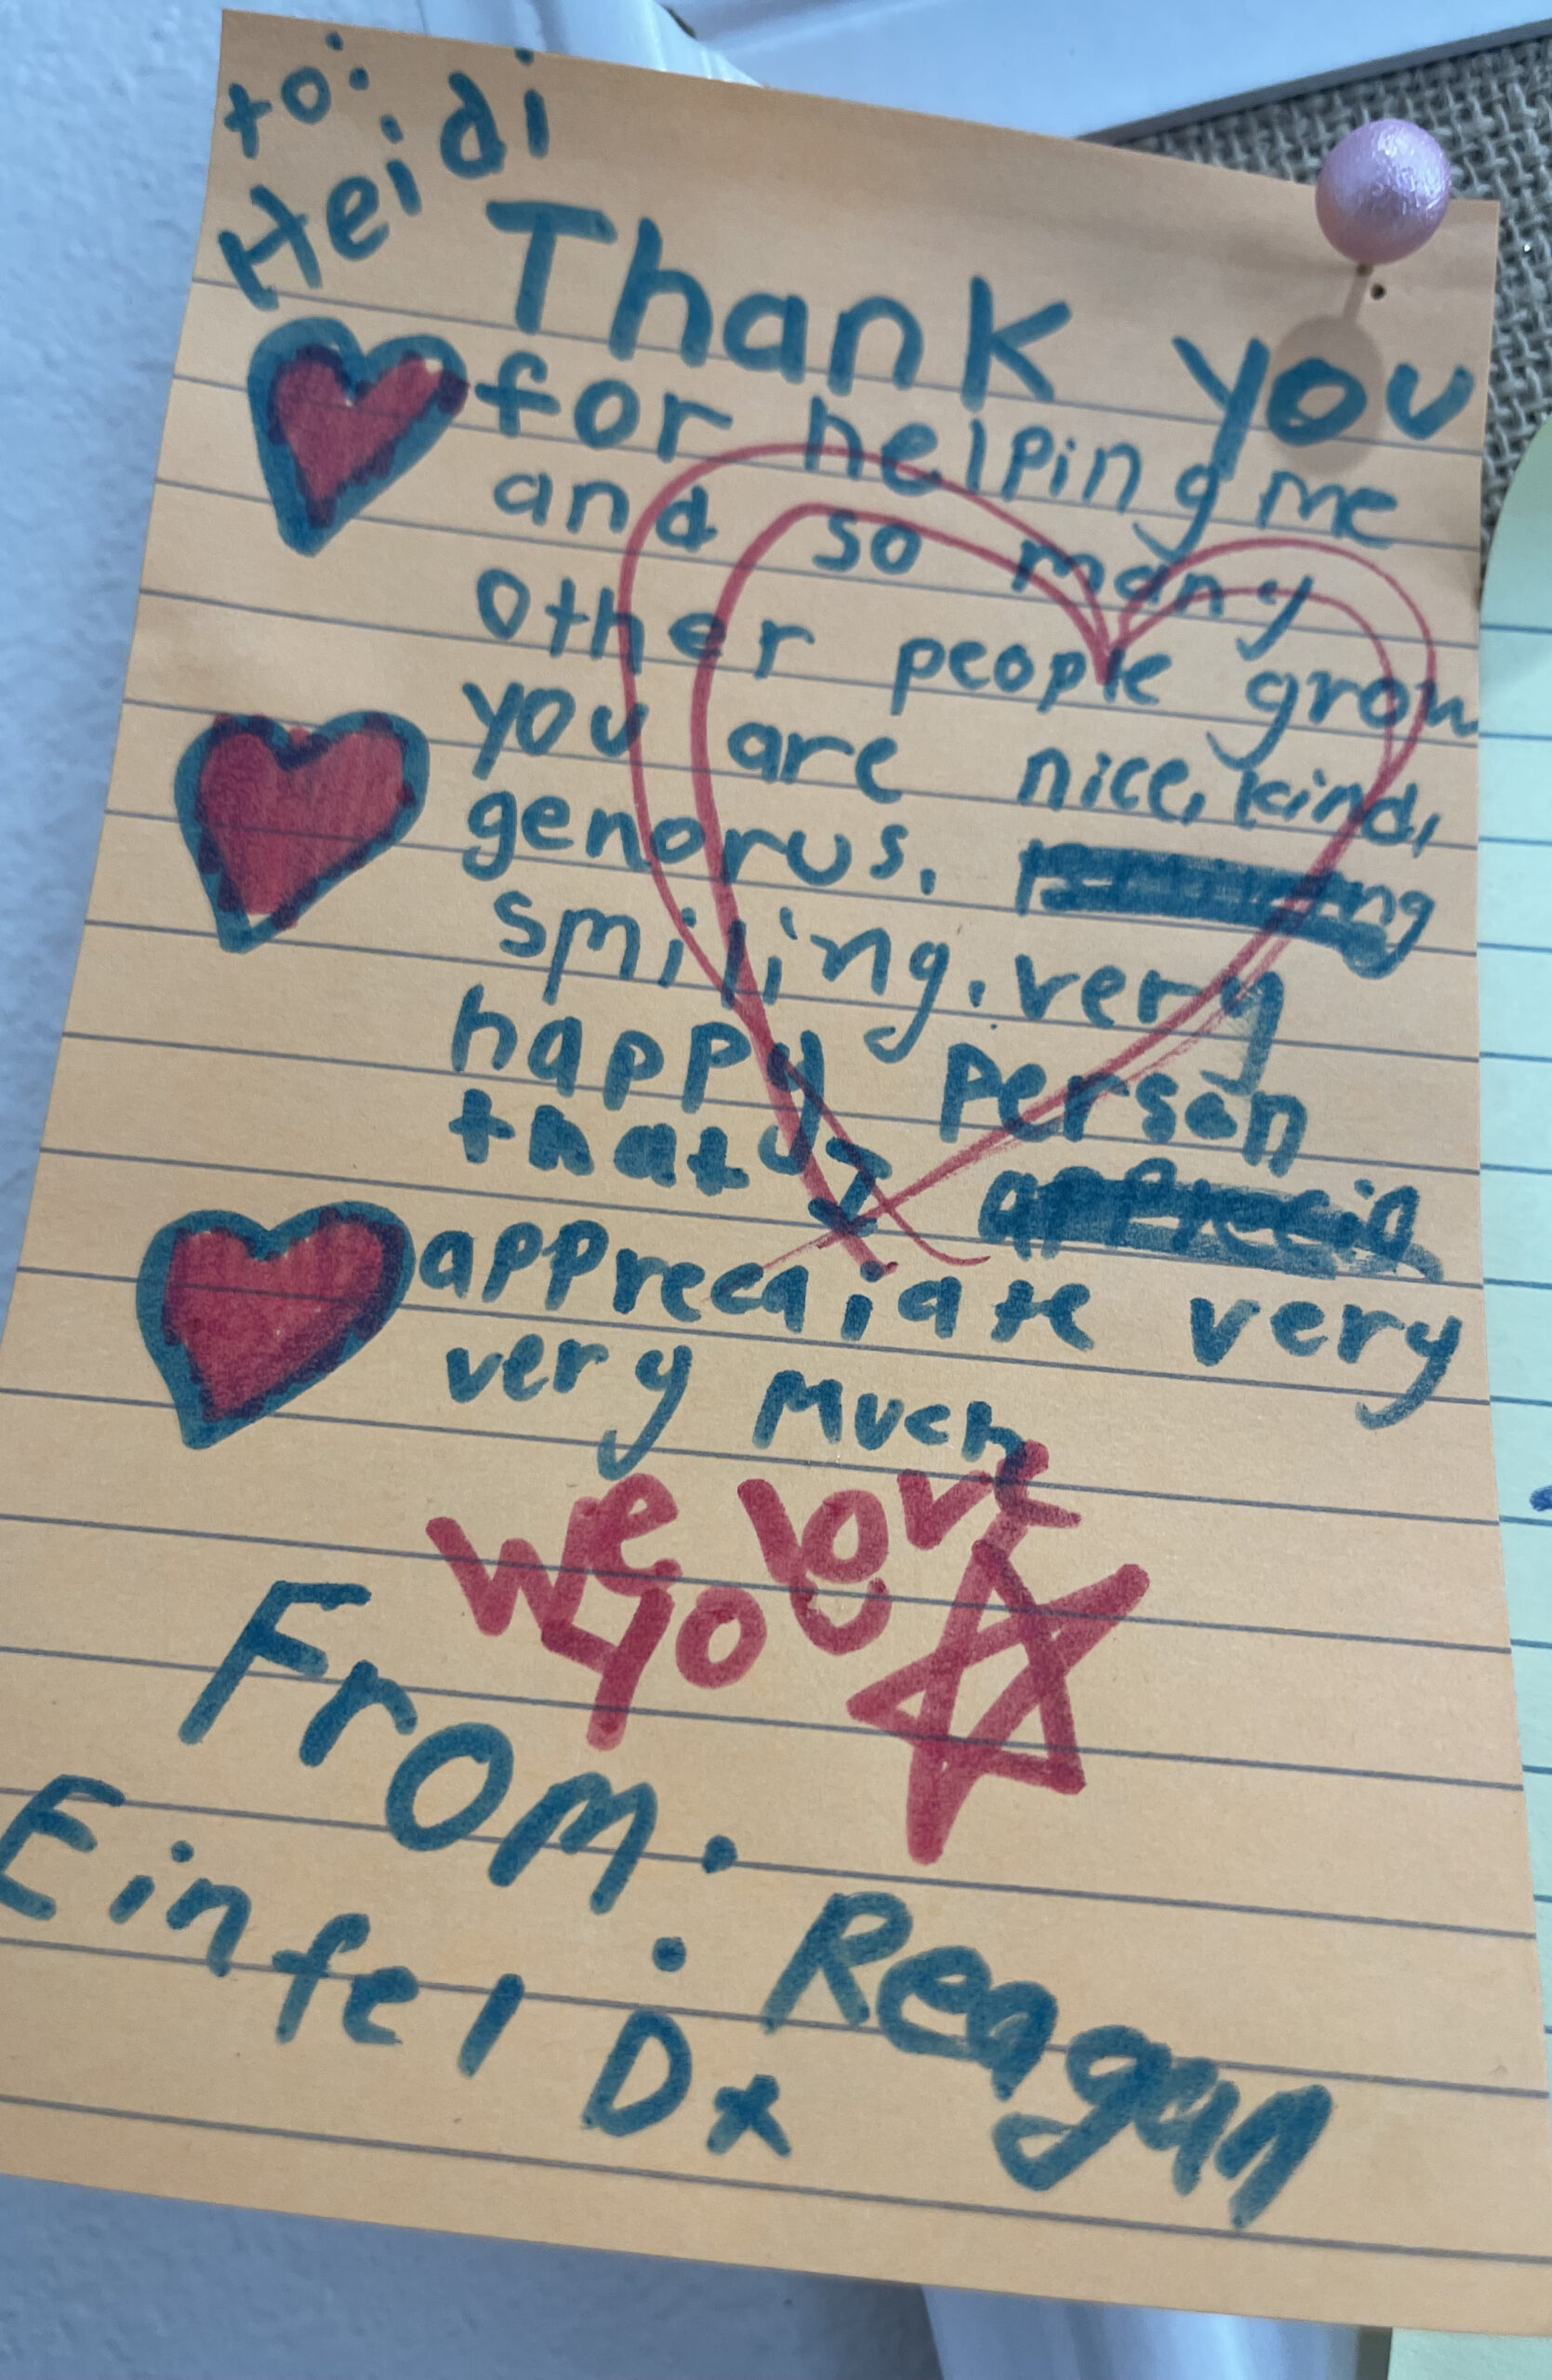 to:
Heidi
Thank you
for helping me
and so many
other people grow
you are nice, kind,
genorus,
smiling, very
happy person
that I
apprecaiate very
very much
we love
you
From:
Reagan
Einfeldt